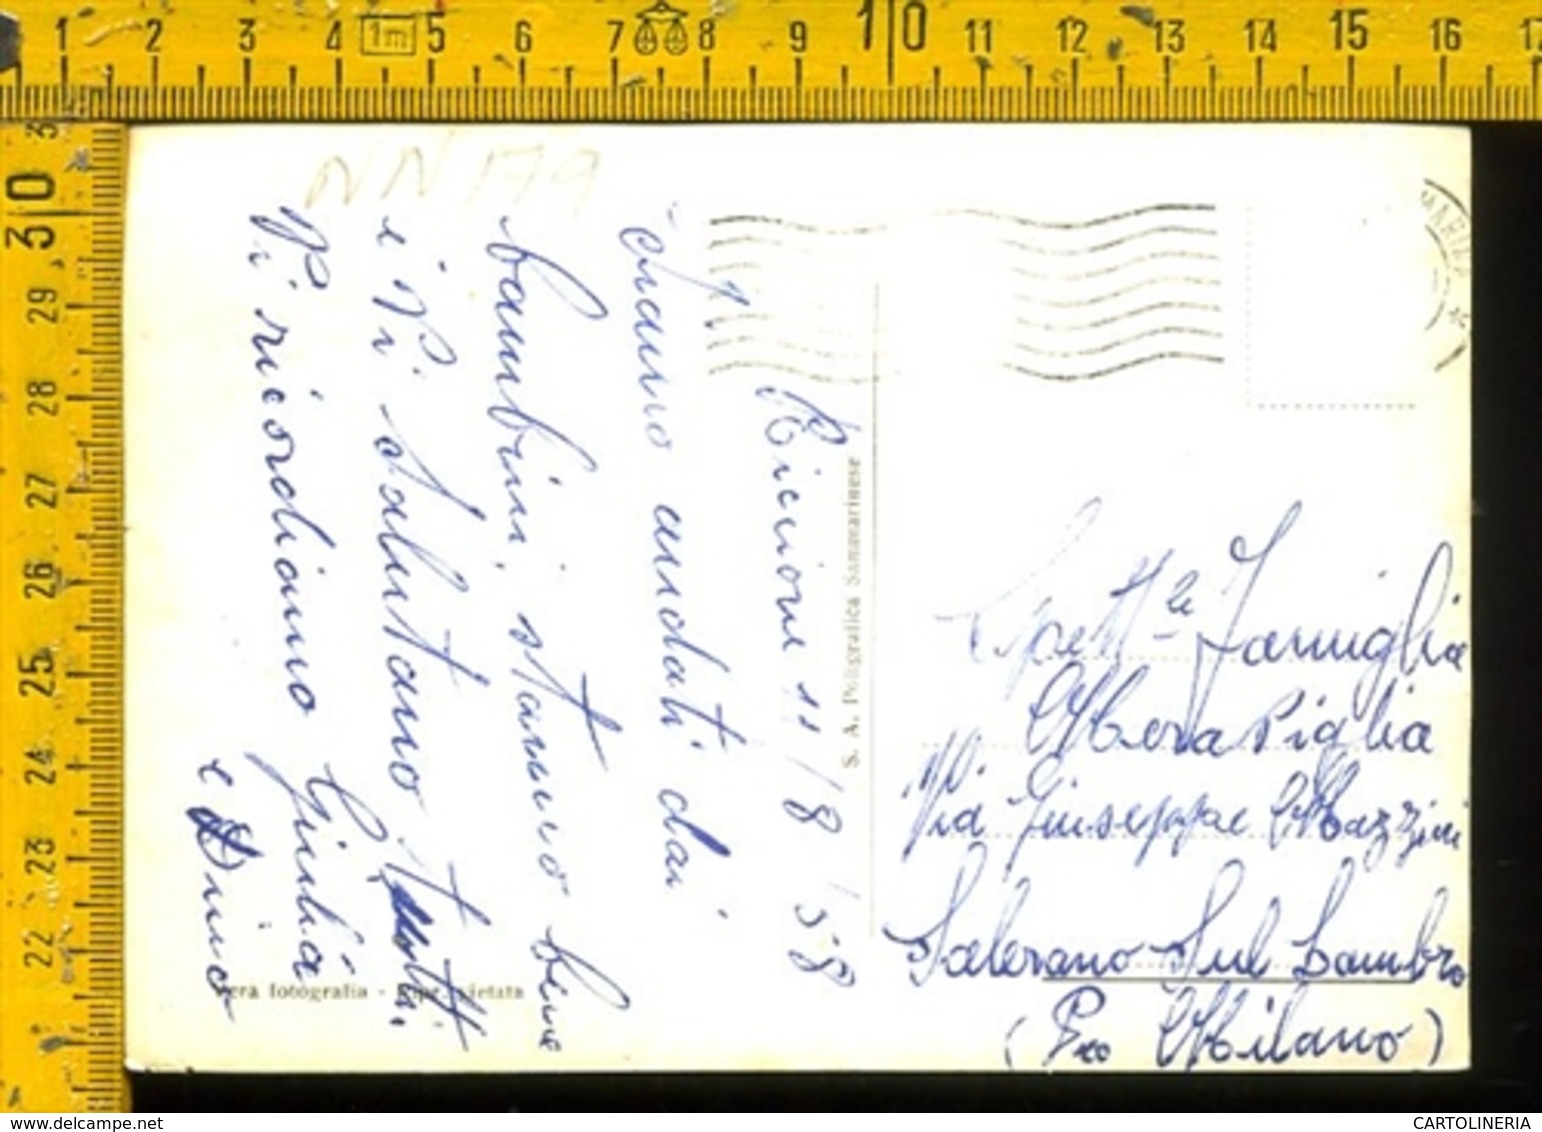 1 2 3 4 1m 5 6 7 8 9 10 11 12 13 14 15 16 17
30 29 28 27 26 25 24 23 22
NN 179
Riccione 11/8/58
siamo andati dai
bambini, stanno bene
e Vi salutano tutti
tutti.
Vi ricordiamo Giulia
e Dino
S. A. Poligrafica Sammarinese
Vera fotografia - Ripr. vietata
Spett.le Famiglia
Via Giuseppe Mazzini
Salerano Sul Lambro
(Pro Milano)
www.delcampe.net
CARTOLINERIA